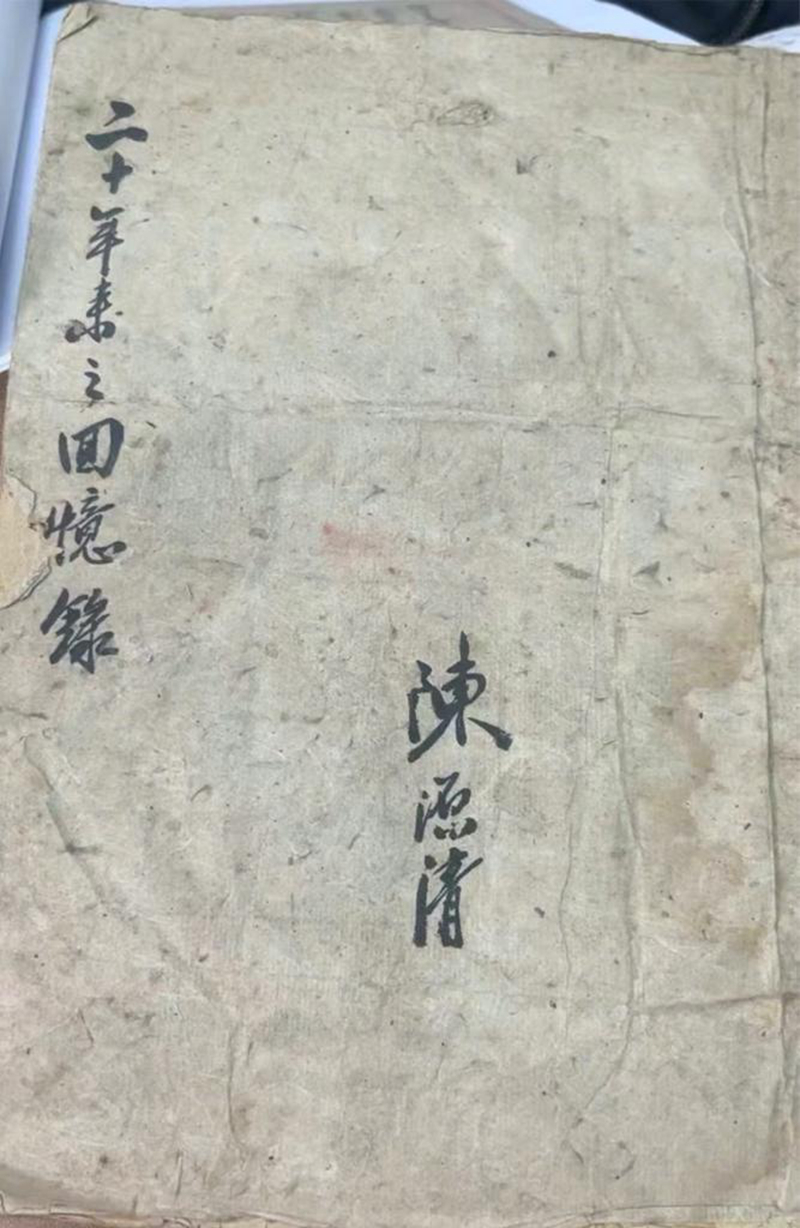 二十年來之回憶錄
陳源清